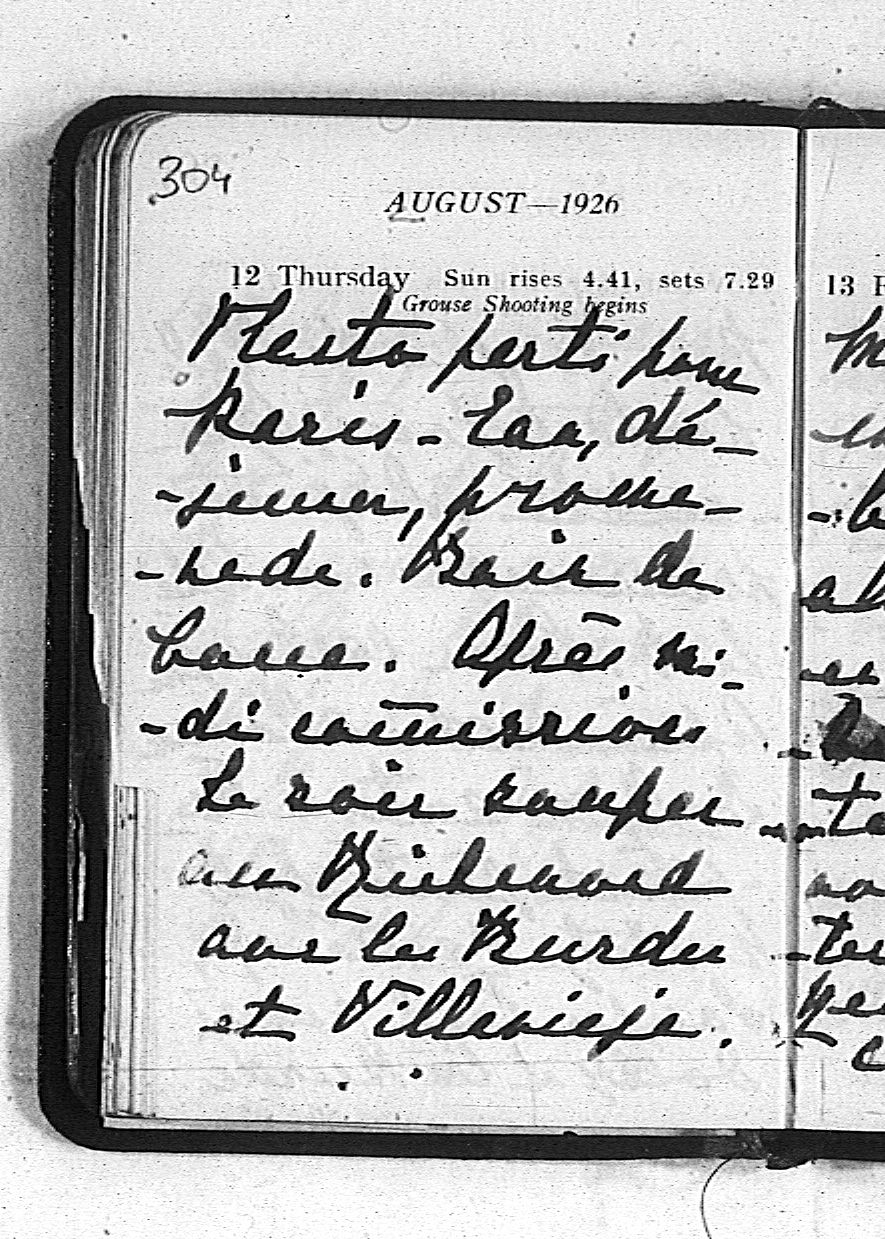 304
AUGUST—1926
12 Thursday Sun rises 4.41, sets 7.29
Grouse Shooting begins
parti pour
Paris - Eau, dé-
-jeuner, prome-
-nade. Bain de
boue. Après mi-
-di com̄issions
Le soir souper
au Richemond
avec les
et Villevieja.
13